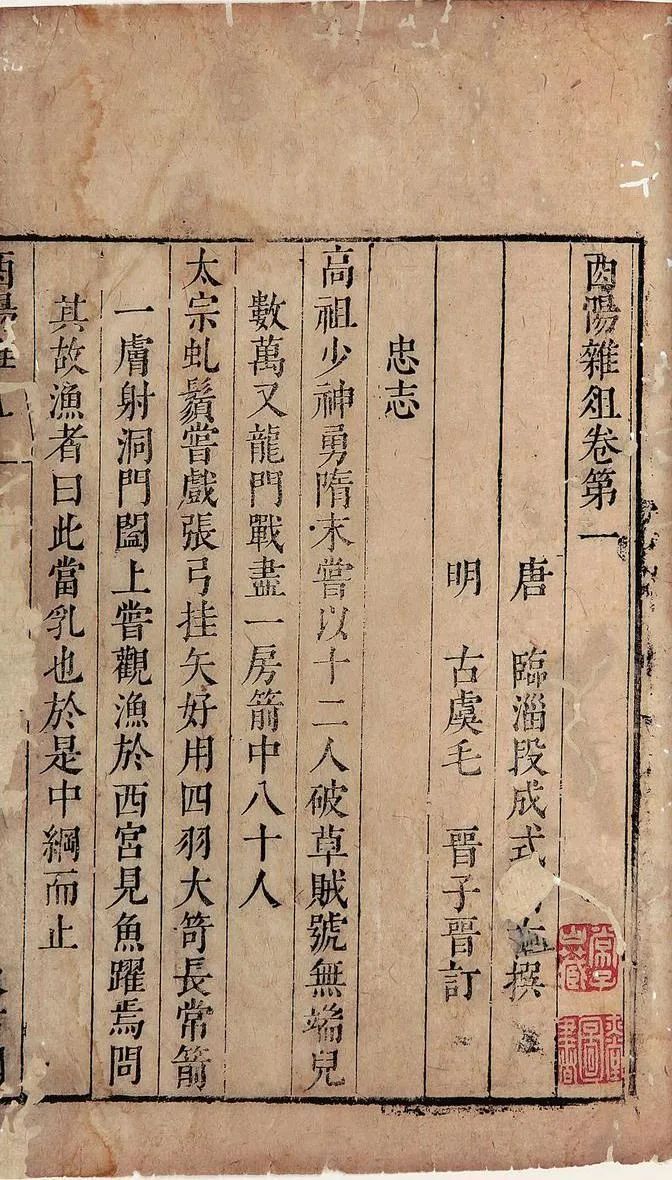 酉陽雜俎卷第一
唐 臨淄段成式 撰
明 古虞毛 晉子晉訂
忠志
高祖少神勇隋末嘗以十二人破草賊號無端兒
數萬又龍門戰盡一房箭中八十人
太宗虬鬚嘗戲張弓挂矢好用四羽大笴長常箭
一膚射洞門闔上嘗觀漁於西宮見魚躍焉問
其故漁者曰此當乳也於是中網而止